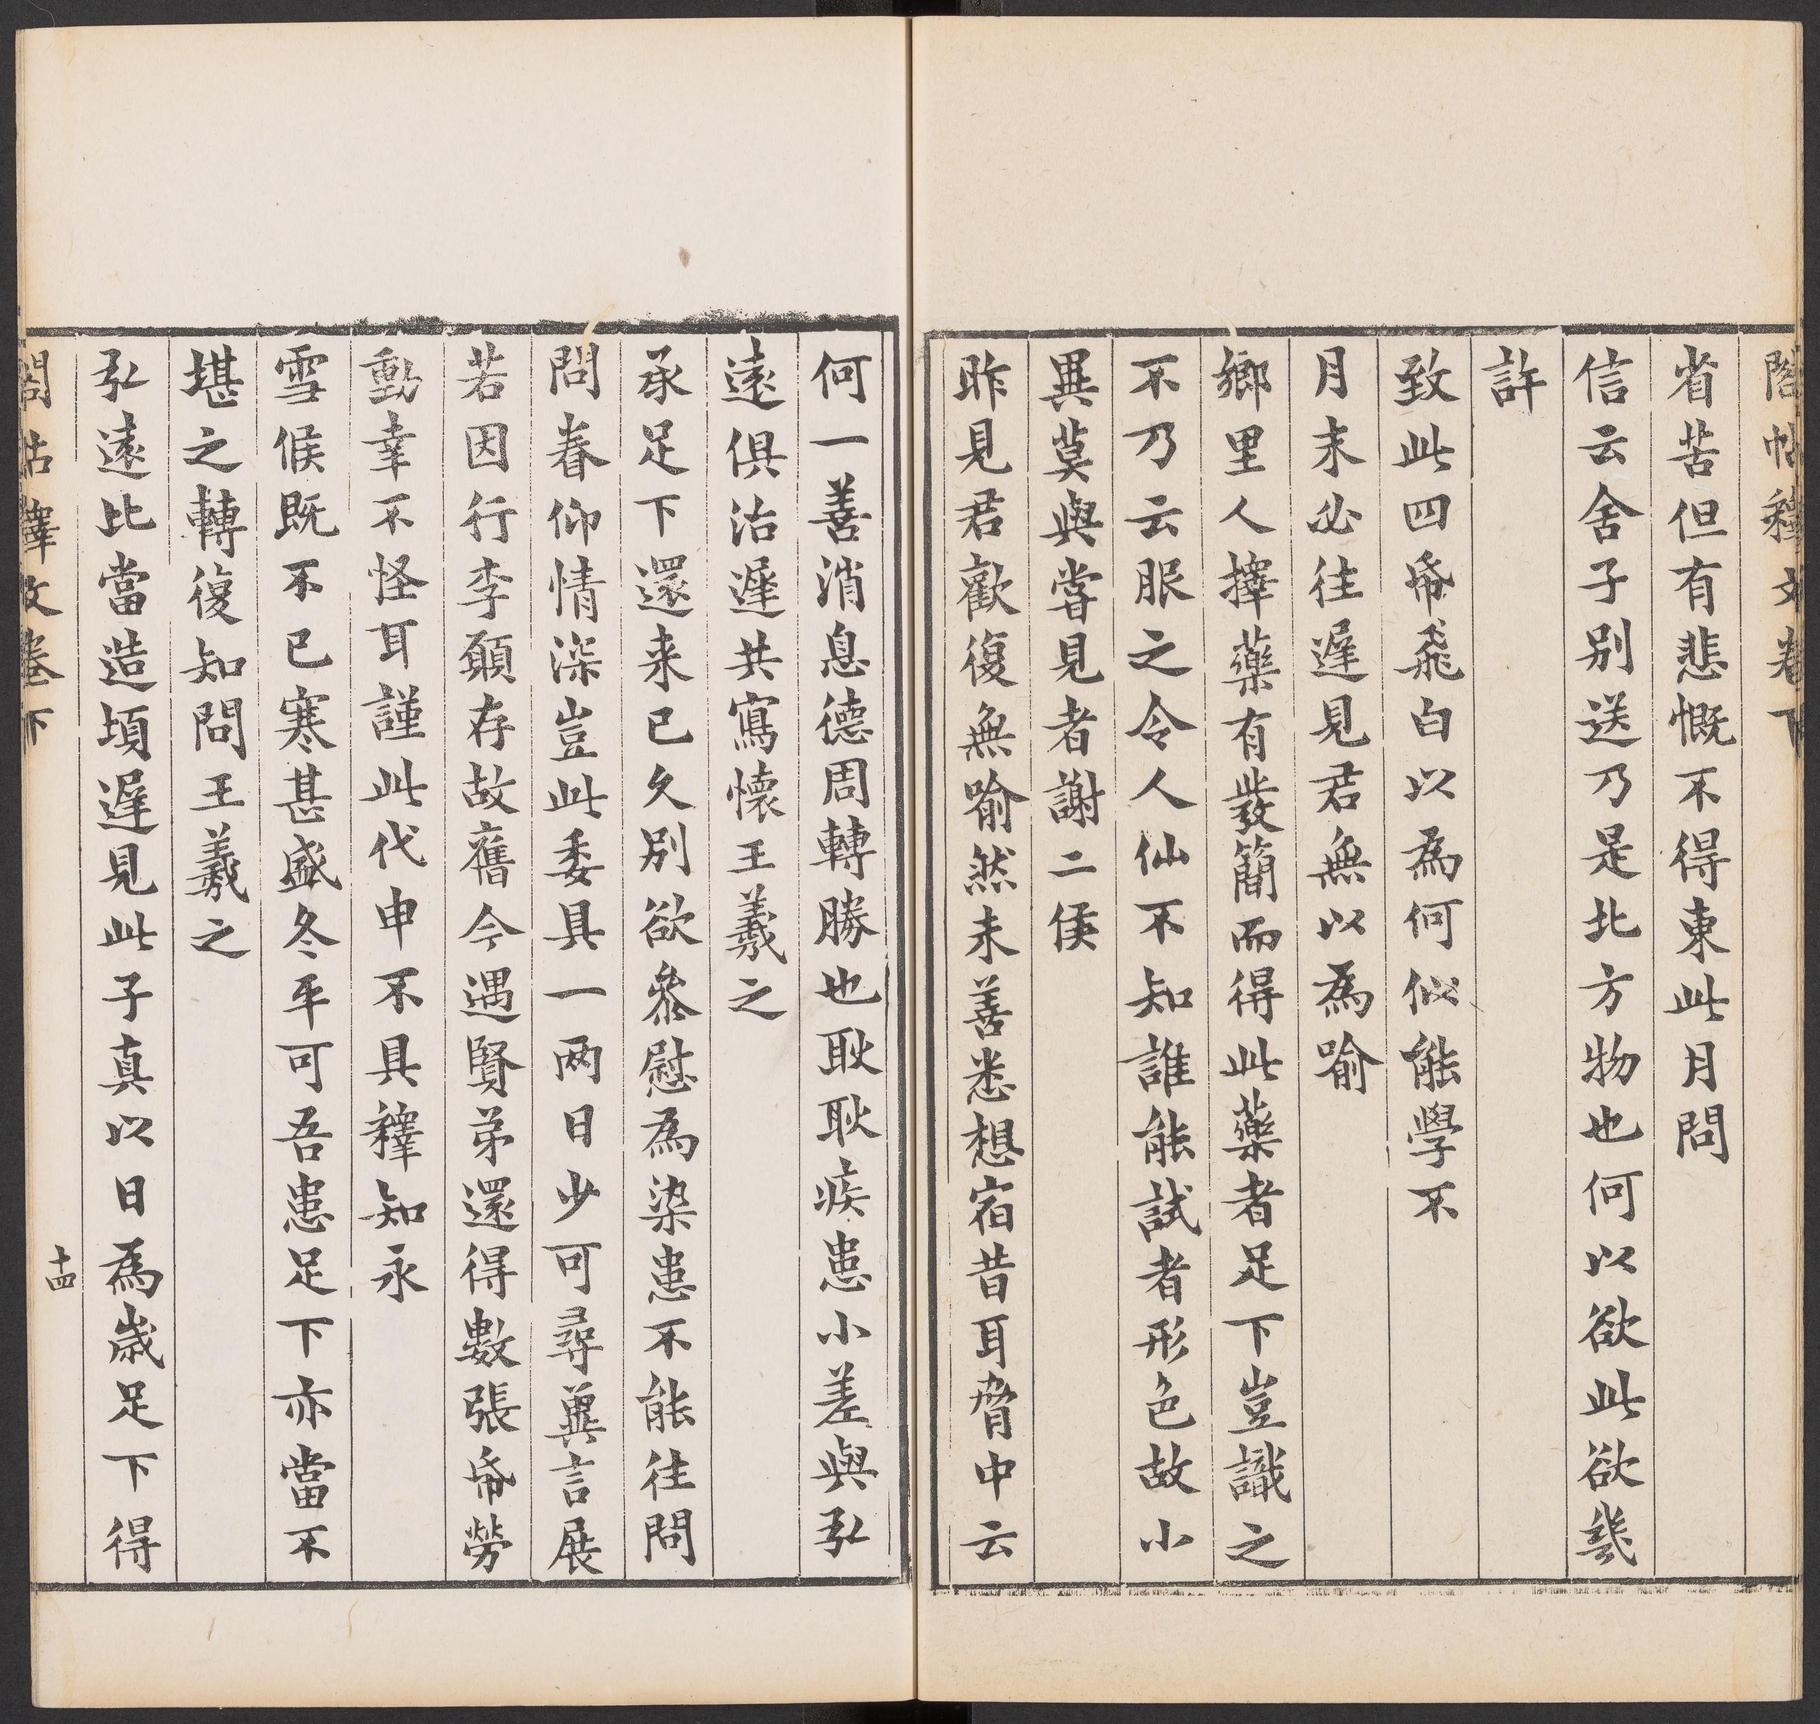 閣帖釋文卷下
省苦但有悲慨不得東此月問
信云舍子別送乃是北方物也何以欲此欲幾
許
致此四帋飛白以為何似能學不
月末必往遲見君無以為喻
鄉里人擇藥有發簡而得此藥者足下豈識之
不乃云服之令人仙不知誰能試者形色故小
異莫與嘗見者謝二侯
昨見君歡復無喻然未善悉想宿昔耳脅中云
何一善消息德周轉勝也耿耿疾患小差與弘
遠俱治遲共寫懷王羲之
承足下還来已久別欲參慰為染患不能往問
問眷仰情深豈此委具一兩日少可尋冀言展
若因行李願存故舊今遇賢弟還得數張帋勞
動幸不怪耳謹此代申不具釋知永
雪候既不已寒甚盛冬平可吾患足下亦當不
堪之轉復知問王羲之
弘遠比當造頃遲見此子真以日為歲足下得
閣帖釋文卷下
十四